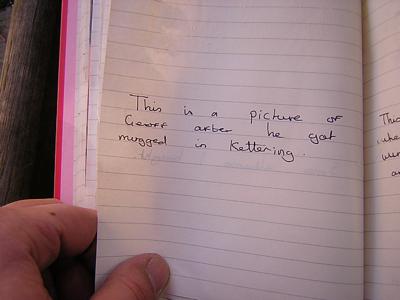 This is a picture of
Geoff after he got
mugged in Kettering.